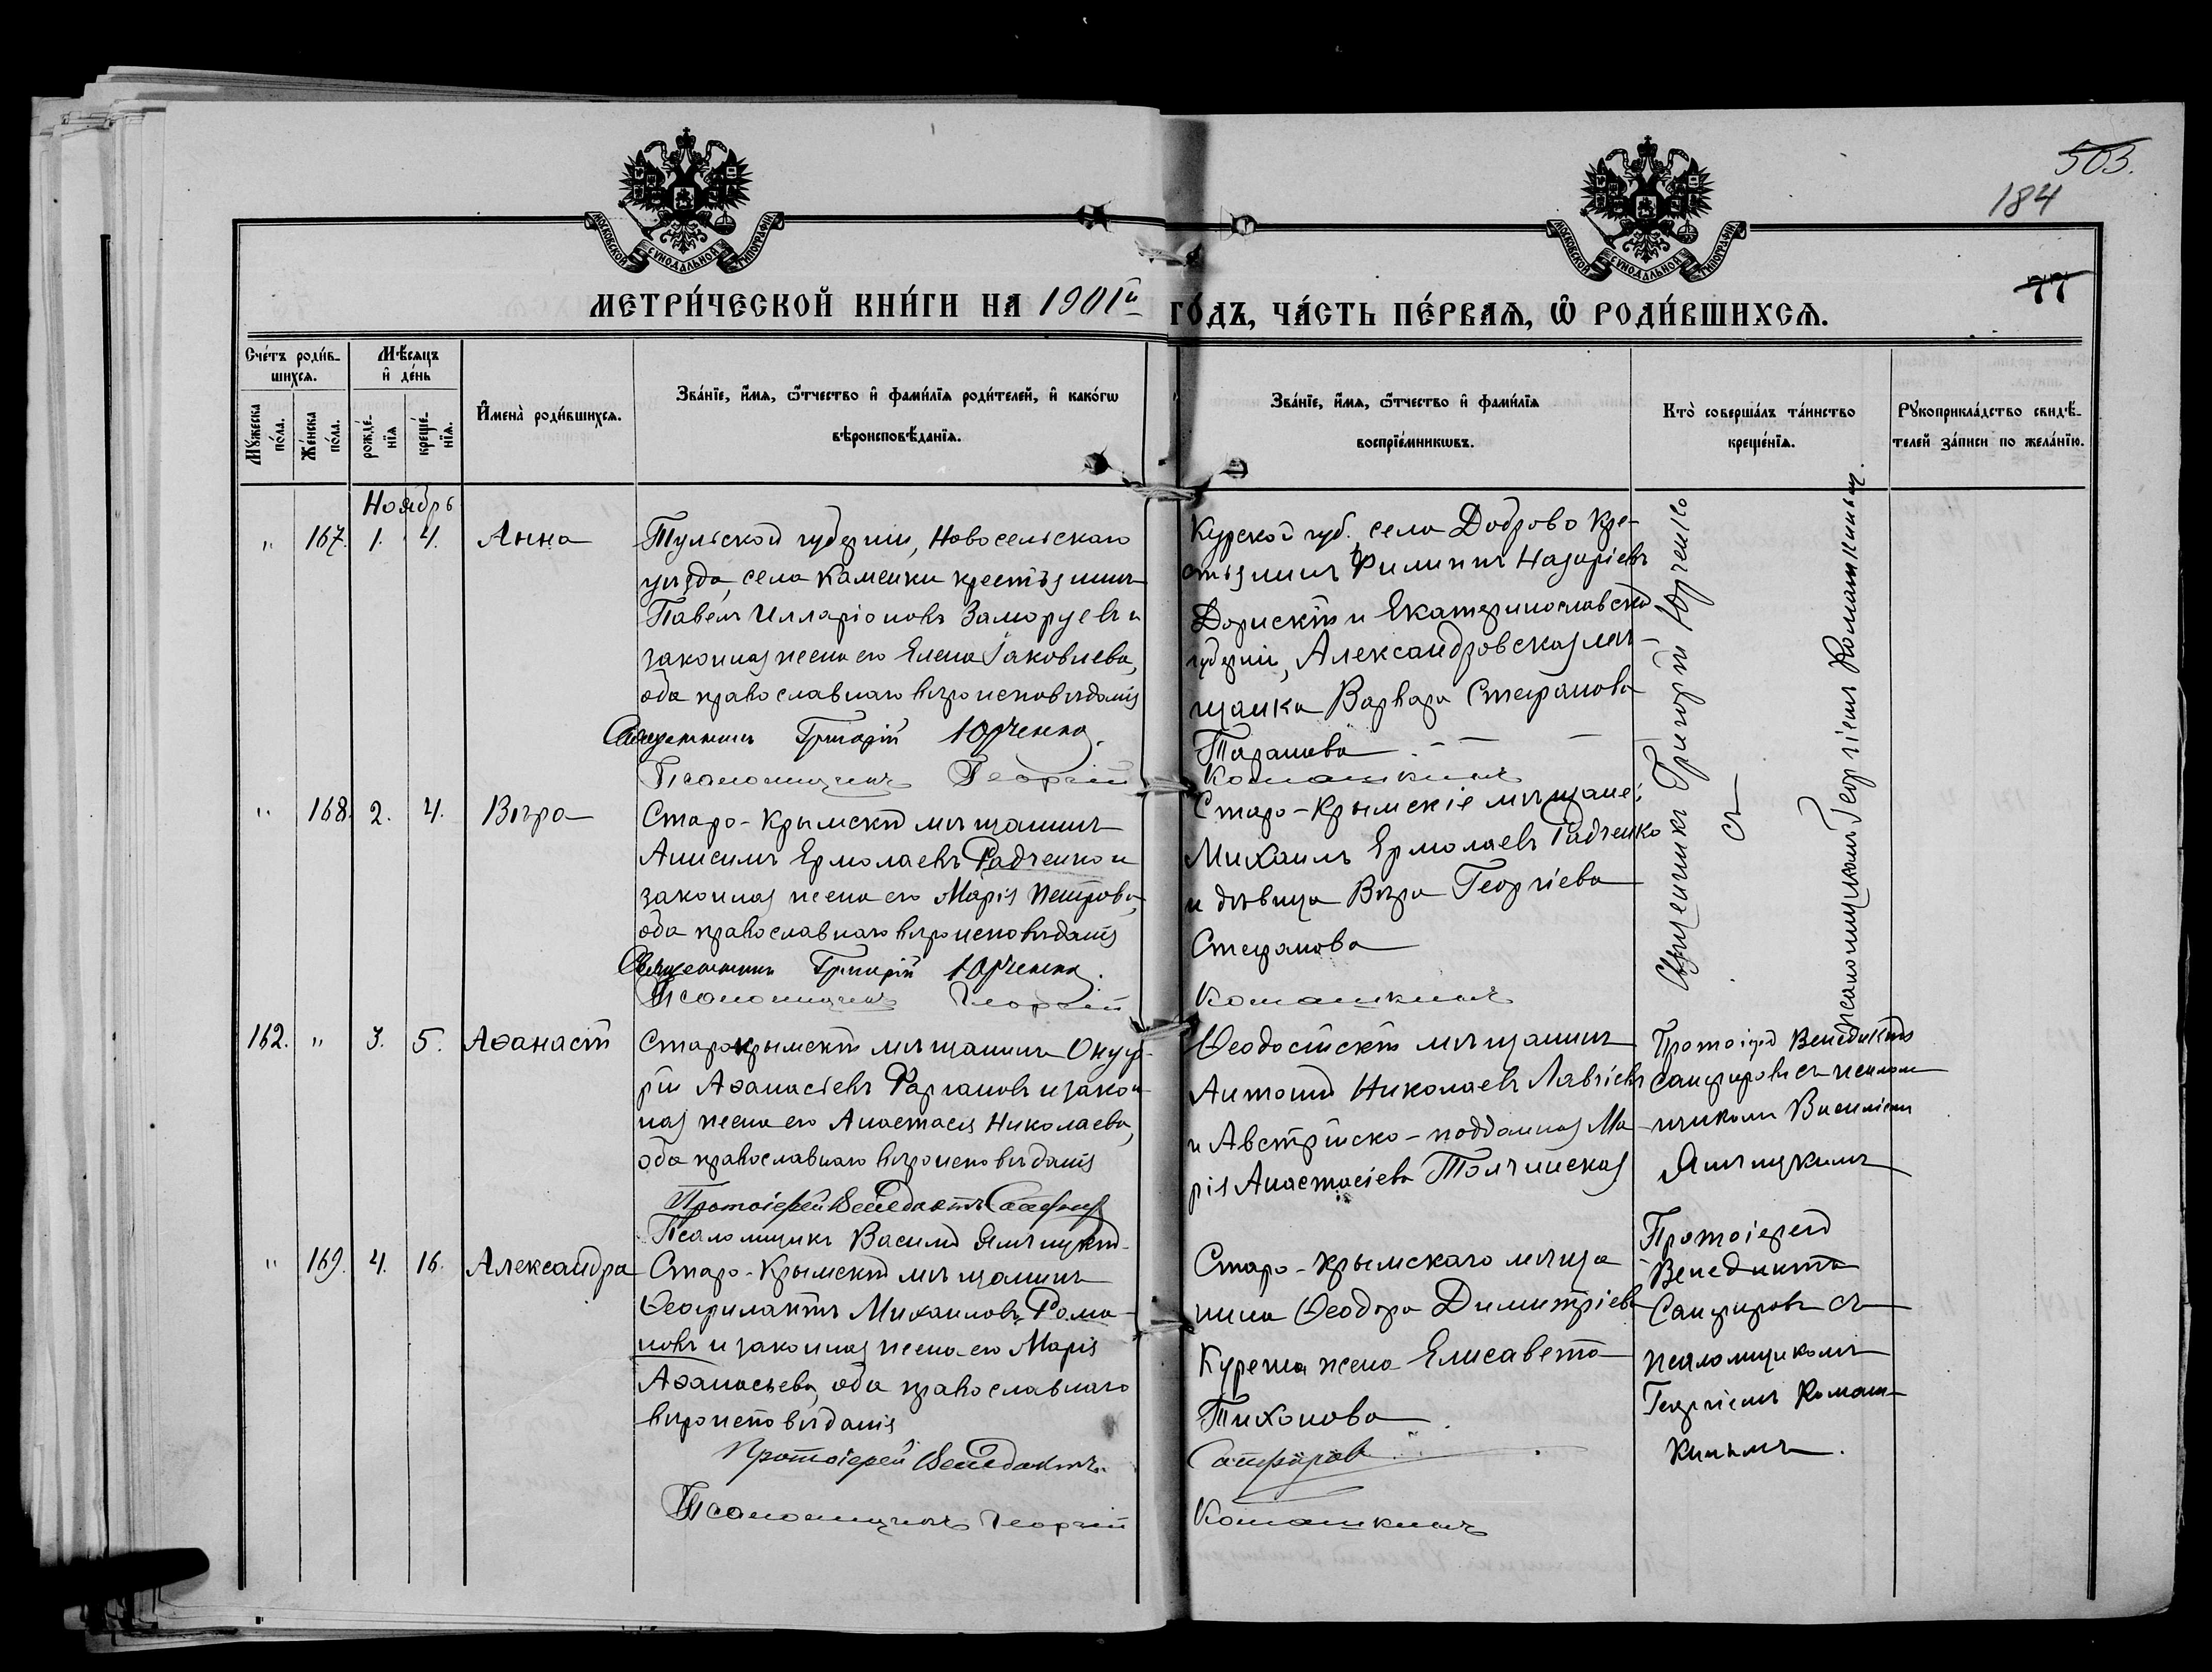 503.
184
77
МОСКОВСКОЙ СУНОДАЛЬНОЙ ТИПОГРАФІИ
МОСКОВСКОЙ СУНОДАЛЬНОЙ ТИПОГРАФІИ
МЕТРИ́ЧЕСКОЙ КНИ́ГИ НА 1901й ГО́ДЪ, ЧА́СТЬ ПЕ́РВАѦ, Ѡ҆ РОДИ́ВШИХСѦ.
Сче́тъ роди́вшихсѧ.
Мꙋ́жеска по́ла.
Же́нска по́ла.
Мѣ́сѧцъ и҆ де́нь
рожде́нїѧ
креще́нїѧ.
И҆мена̀ роди́вшихсѧ.
Зва́нїе, и҆́мѧ, ѻ҆́тчество и҆ фами́лїѧ роди́телей, и҆ како́гѡ
вѣроисповѣ́данїѧ.
Зва́нїе, и҆́мѧ, ѻ҆́тчество и҆ фами́лїѧ
воспрїе́мникѡвъ.
Кто̀ соверша́лъ та́инство
креще́нїѧ.
Рꙋкоприкла́дство свидѣ́телей за́писи по жела́нїю.
Ноябрь
" 167. 1. 4. Анна
Тульской губерніи, Новосельскаго
уѣзда, села Каменки крестьянинъ
Павелъ Илларіоновъ Заморуевъ и
законная жена его Елена Іаковлева,
оба православнаго вѣроисповѣданія
Священникъ Григорій Юрченко.
Псаломщикъ Георгій Комашкинъ
Курской губ. села Доброво кре-
стьянинъ Филиппъ Назаріевъ
Дорискій и Екатеринославской
губерніи, Александровская мѣ-
щанка Варвара Стефанова
Таранова
Священникъ Григорій Юрченко
съ
псаломщикомъ Георгіемъ Комашкинымъ.
" 168. 2. 4. Вѣра
Старо-Крымскій мѣщанинъ
Анисимъ Ермолаевъ Радченко и
законная жена его Марія Петрова,
оба православнаго вѣроисповѣданія
Священникъ Григорій Юрченко.
Псаломщикъ Георгій Комашкинъ
Старо-Крымскіе мѣщане:
Михаилъ Ермолаевъ Радченко
и дѣвица Вѣра Георгіева
Стефанова
162. " 3. 5. Аѳанасій
Старокрымскій мѣщанинъ Онуф-
рій Аѳанасіевъ Фаргановъ и закон-
ная жена его Анастасія Николаева,
оба православнаго вѣроисповѣданія
Протоіерей Венедиктъ Сапфировъ
Псаломщикъ Василій Ямчицкій.
Ѳеодосійскій мѣщанинъ
Антоній Николаевъ Лавгіевъ
и Австрійско-подданная Ма-
рія Анастасіева Толчинская
Протоіерей Венедиктъ
Сапфировъ съ псалом-
щикомъ Василіемъ
Ямчицкимъ
" 169. 4. 16. Александра
Старо-Крымскій мѣщанинъ
Ѳеофилактъ Михаиловъ Рома-
новъ и законная жена его Марія
Аѳанасьева, оба православнаго
вѣроисповѣданія
Протоіерей Венедиктъ Сапфировъ
Псаломщикъ Георгій Комашкинъ
Старо-Крымскаго мѣща
нина Ѳеодора Димитріева
Курета жена Елисавета
Тихонова
Протоіерей
Венедиктъ
Сапфировъ съ
псаломщикомъ
Георгіемъ Комаш-
кинымъ.